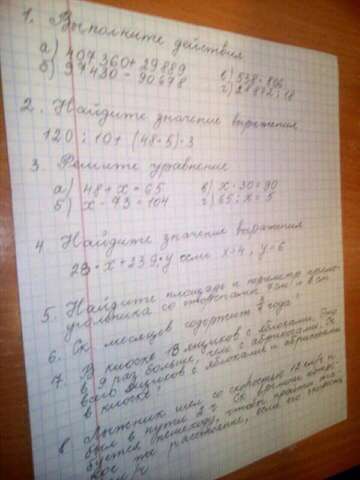 1. Выполните действия
а) 407360 + 29889 в) 538 · 806
б) 97430 - 90678 г) 21872 : 18
2. Найдите значение выражения
120 : 10 + (48 - 5) · 3
3. Решите уравнение
а) 48 + x = 65 в) x · 30 = 90
б) x - 73 = 104 г) 65 : x = 5
4. Найдите значение выражения
23 · x + 239 · y если x = 4, y = 6
5. Найдите площадь и периметр прямо-
угольника со сторонами 7 см и 8 см
6. Ск. месяцев содержит года?
7. В киоске 13 ящиков с яблоками. Это
в 9 раз больше, чем с абрикосами. Ск.
всего ящиков с яблоками и абрикосами
в киоске?
8. Лыжник шел со скоростью 12 км/ч и
был в пути 2 ч. Ск. времени потре-
буется пешеходу, чтобы пройти та-
кое же расстояние, если его скорость